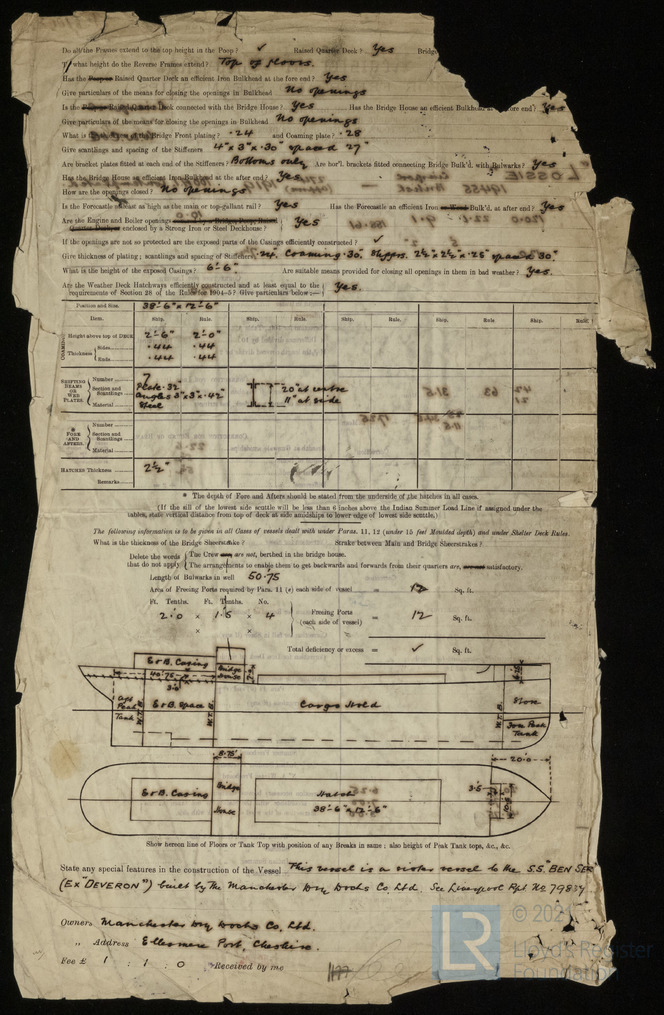 Do all the Frames extend to the top height in the Poop? ✓ Raised Quarter Deck? Yes Bridg
To what height do the Reverse Frames extend? Top of floors.
Has the Poop or Raised Quarter Deck an efficient Iron Bulkhead at the fore end? Yes
Give particulars of the means for closing the openings in Bulkhead No openings
Is the Deck connected with the Bridge House? Yes Has the Bridge House an efficient Bulkhead at fore end? Yes
Give particulars of the means for closing the openings in Bulkhead No openings
What is the Bridge Front plating? .24 and Coaming plate? .28
Give scantlings and spacing of the Stiffeners 4" x 3" x .30" spaced 27"
Are bracket plates fitted at each end of the Stiffeners? Bottoms only Are hor'l. brackets fitted connecting Bridge Bulk'd. with Bulwarks? Yes
Has the Bridge House an efficient Iron Bulkhead at the after end? Yes
How are the openings closed? No openings
Is the Forecastle at least as high as the main or top-gallant rail? Yes Has the Forecastle an efficient Iron Bulkhead at after end? Yes
Are the Engine and Boiler openings
Quarter Deck, or enclosed by a Strong Iron or Steel Deckhouse? Yes
If the openings are not so protected are the exposed parts of the Casings efficiently constructed? ✓
Give thickness of plating; scantlings and spacing of Stiffeners .24. Coaming .30. Stiffrs. 2½" x 2½" x .25" spaced 30"
What is the height of the exposed Casings? 6'-6" Are suitable means provided for closing all openings in them in bad weather? Yes.
Are the Weather Deck Hatchways efficiently constructed and at least equal to the
requirements of Section 28 of the Rules for 1904-5? Give particulars below:— Yes.
Position and Size. 38'-6" x 12'-6"
Item. Ship. Rule. Ship. Rule. Ship. Rule. Ship. Rule. Ship. Rule.
COAMING Height above top of DECK 2'-6" 2'-0"
Thickness Sides .44 .44
Ends .44 .44
SHIFTING BEAMS OR WEB PLATES. Number 7
Section and Scantlings Plate .32" Angles 3" x 3" x .42" 20" at centre 11" at side
Material Steel
* FORE AND AFTERS. Number
Section and Scantlings
Material
HATCHES Thickness 2½"
Remarks.
* The depth of Fore and Afters should be stated from the underside of the hatches in all cases.
(If the sill of the lowest side scuttle will be less than 6 inches above the Indian Summer Load Line if assigned under the
tables, state vertical distance from top of deck at side amidships to lower edge of lowest side scuttle.)
The following information is to be given in all Cases of vessels dealt with under Paras. 11, 12 (under 15 feet Moulded depth) and under Shelter Deck Rules.
What is the thickness of the Bridge Sheerstrake? Strake between Main and Bridge Sheerstrakes?
Delete the words The Crew are, are not, berthed in the bridge house.
that do not apply The arrangements to enable them to get backwards and forwards from their quarters are, are not satisfactory.
Length of Bulwarks in well 50.75
Area of Freeing Ports required by Para. 11 (e) each side of vessel = 12 Sq. ft.
Ft. Tenths. Ft. Tenths. No.
2.0 x 1.5 x 4 Freeing Ports (each side of vessel) = 12 Sq. ft.
x x
Total deficiency or excess = ✓ Sq. ft.
E & B. Casing Bridge House
40.75
3.0
Aft Peak Tank W.T.B. E & B. Space W.T.B. Cargo Hold W.T.B. Store Fore Peak Tank
8.75' 20.0
E & B. Casing Bridge House Hatch 38'-6" x 12'-6" 3.5
Show hereon line of Floors or Tank Top with position of any Breaks in same; also height of Peak Tank tops, &c., &c.
State any special features in the construction of the Vessel This vessel is a sister vessel to the S.S. "BEN SEE
(Ex "DEVERON") built by The Manchester Dry Docks Co. Ltd. See Liverpool Rpt. No 79837
Owners Manchester Dry Docks Co. Ltd.
" Address Ellesmere Port, Cheshire.
Fee £ 1 : 1 : 0 Received by me
© 2021
LR Lloyd's Register
Foundation